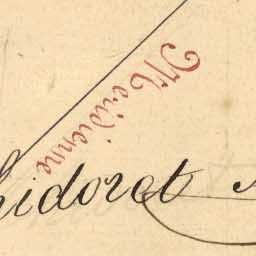 Méridienne
hidoret